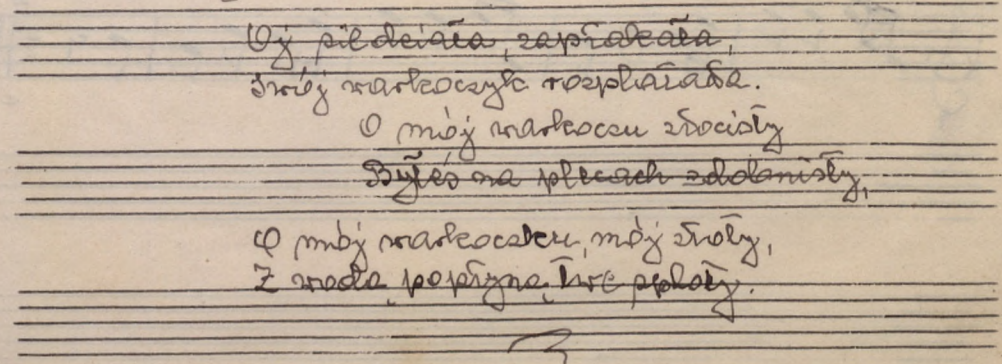 Oj siedziała, zapłakała,
swój warkoczyk rozplatała.
O mój warkoczu złocisty
Byłeś na plecach zdobnisty,
O mój warkoczku, mój złoty,
Z wodą popłyną twe sploty.